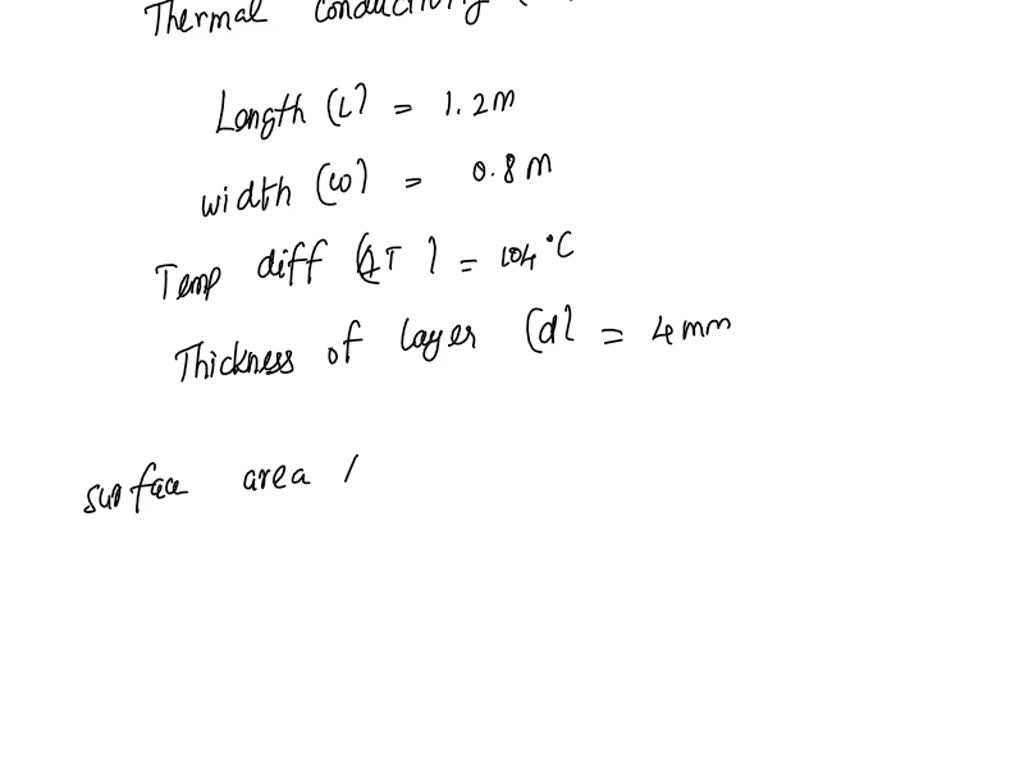 Thermal conductivity (
Length (L) = 1.2m
width (w) = 0.8m
Temp diff (ΔT) = 104°C
Thickness of layer (d) = 4mm
surface area (